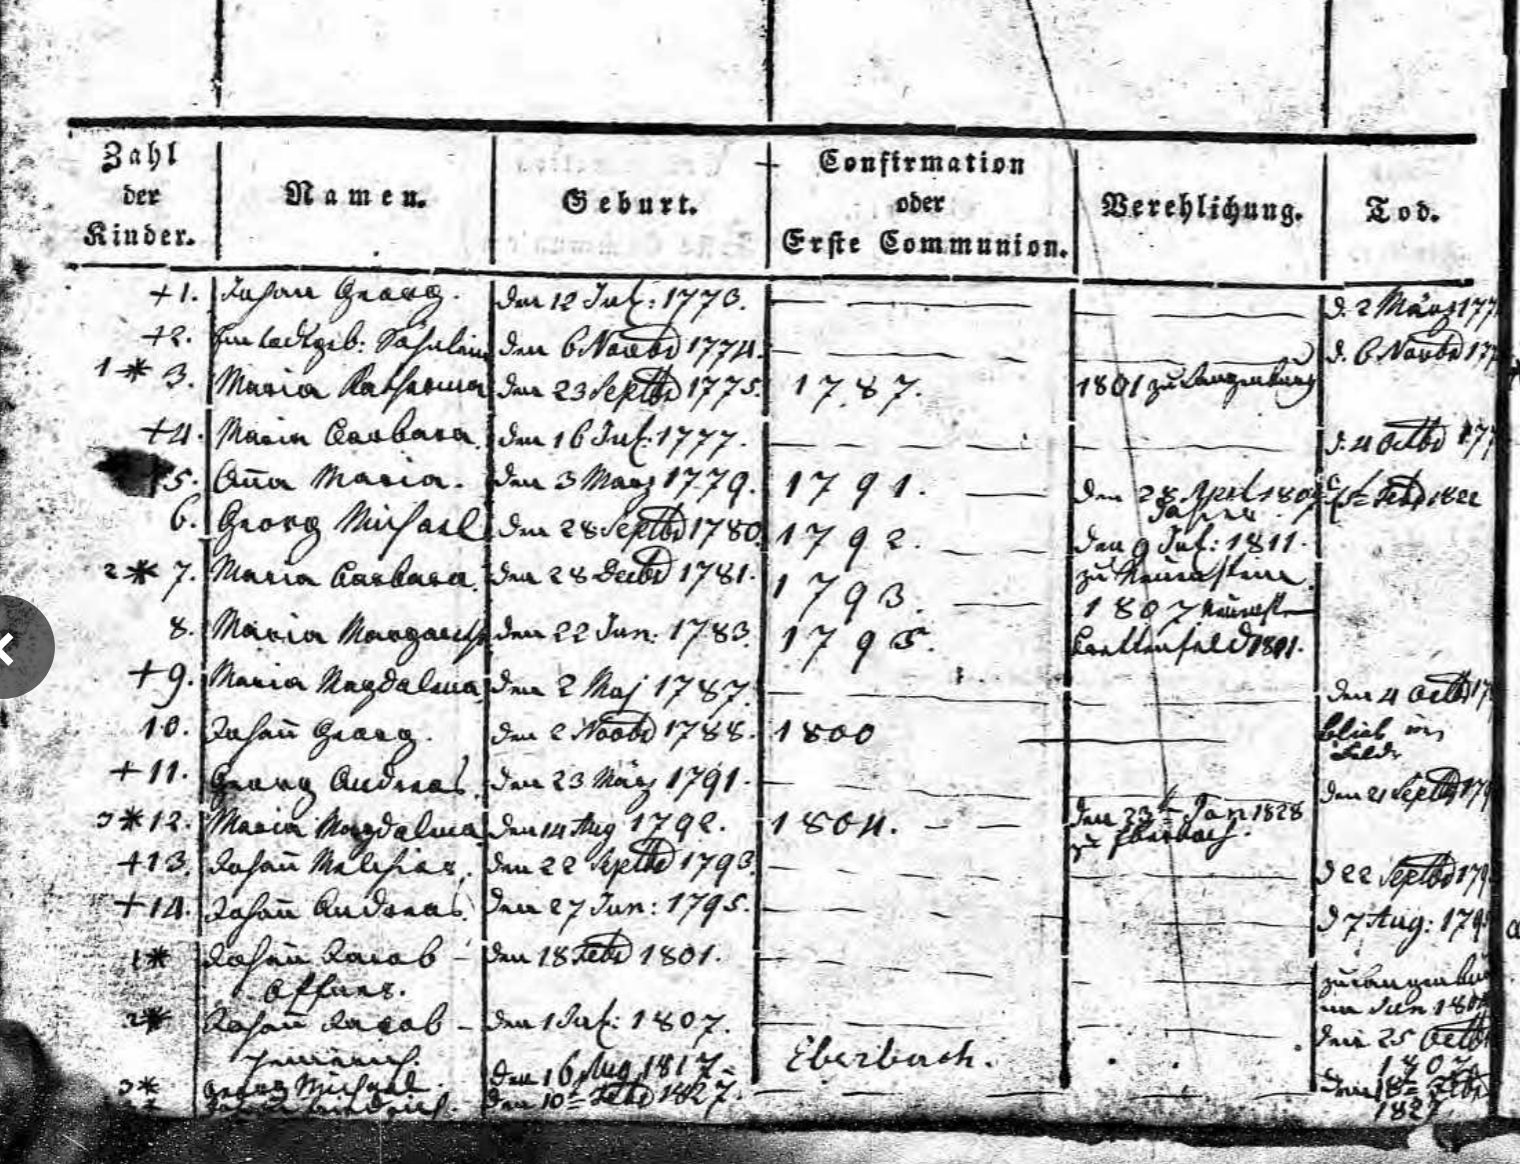 Zahl der Kinder. Namen. Geburt. Confirmation oder Erste Communion. Verehlichung. Tod.
+1. Johann Georg. den 12 Jul: 1773. d. 2 März 177
+2. Ein todtgeb: Söhnlein den 6 Novbr 1774. d. 6 Novbr 177
1 * 3. Maria Katharina den 23 Septbr 1775. 1787. 1801 zu Langenburg
+4. Maria Barbara. den 16 Jul: 1777. d. 4 Octbr 177
5. Anna Maria. den 3 März 1779. 1791. den 28 April Febr 1822
6. Georg Michael den 28 Septbr 1780. 1792. den 9 Jul: 1811.
2 * 7. Maria Barbara den 28 Decbr 1781. 1793. zu
1807
8. Maria Margareth den 22 Jun: 1783. 1795.
+9. Maria Magdalena den 2 Maj 1787. den 4 Octbr 17
10. Johann Georg. den 2 Novbr 1788. 1800 blieb im Felde
+11. Georg Andreas. den 23 März 1791. den 21 Septbr 179
3 * 12. Maria Magdalena den 14 Aug 1792. 1804. den 23ten Jan 1828
zu Eberbach.
+13. Johann Melchior. den 22 Septbr 1793. d 22 Septbr 179
+14. Johann Andreas. den 27 Jun: 1795. d 7 Aug: 179
1* Johann Jacob - den 18 Febr 1801. zu
im Jun 180
2* Johann Jacob - den 1 Jul: 1807. den 25 Octbr
1807
3* Georg Michael. den 16 Aug 1817. Eberbach.
den 10ten Febr 1827. den 18ten
1827.